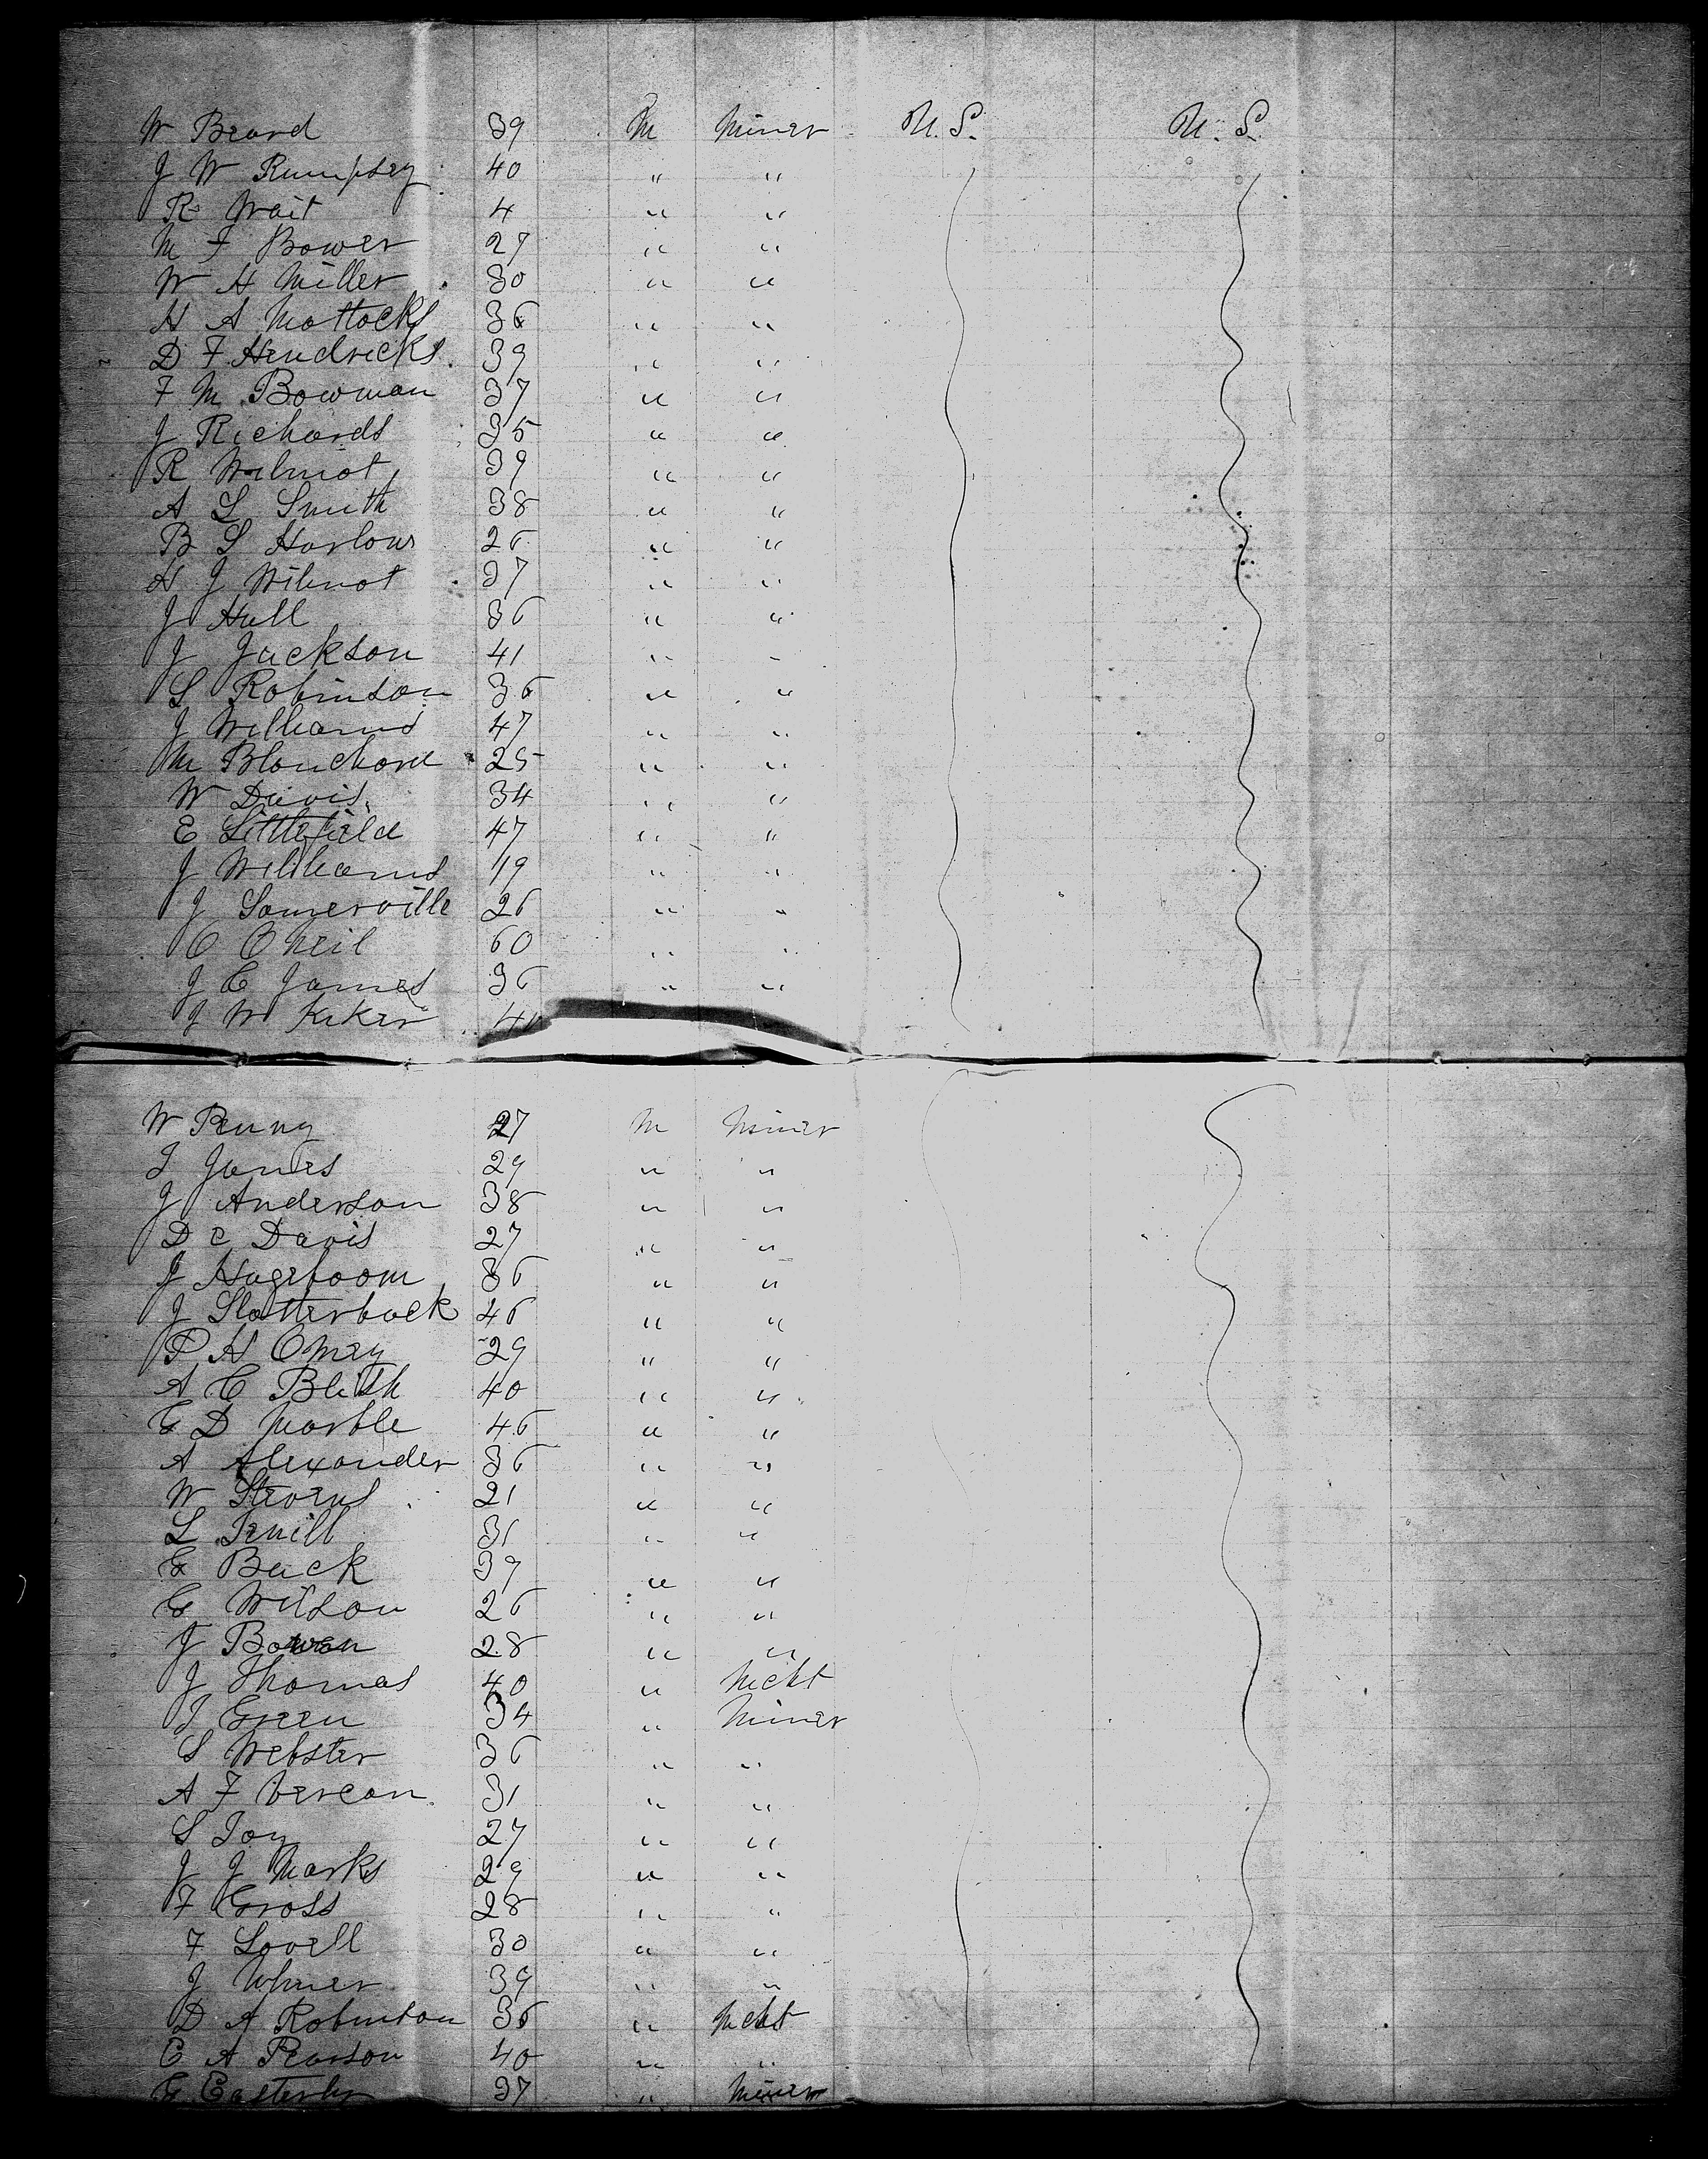 W Beard 39 M Miner U.S. U.S.
J W Rumpsey 40 " "
R Wait 4 " "
M F Bower 27 " "
W H Miller 30 " "
H A Mattocks 36 " "
D F Hendricks 39 " "
F M Bowman 37 " "
J Richards 35 " "
R Wilmot 39 " "
A L Smith 38 " "
B S Harlow 26 " "
H J Wilmot 37 " "
J Hull 36 " "
J Jackson 41 " "
S Robinson 36 " "
J Williams 47 " "
M Blanchard 25 " "
W Davis 34 " "
E Littlefield 47 " "
J Williams 19 " "
J Somerville 26 " "
C O Neil 60 " "
J C James 36 " "
J W Kiker
W Penny 27 M Miner
J Jones 29 " "
J Anderson 38 " "
D C Davis 27 " "
J Hageboom 36 " "
J Slatterback 46 " "
P H 29 " "
A C Blish 40 " "
G D Marble 46 " "
A Alexander 36 " "
W Stevens 21 " "
L 31 " "
G Buck 39 " "
G Wilson 26 " "
J Bowen 28 " "
J Thomas 40 " Mcht
J Green 34 " Miner
S Webster 36 " "
A F 31 " "
S 27 " "
J J Marks 29 " "
F Gross 28 " "
F Lovell 30 " "
J 39 " "
D A Robinson 36 " Mcht
C A Pearson 40 " "
G Easterly 37 " Miner